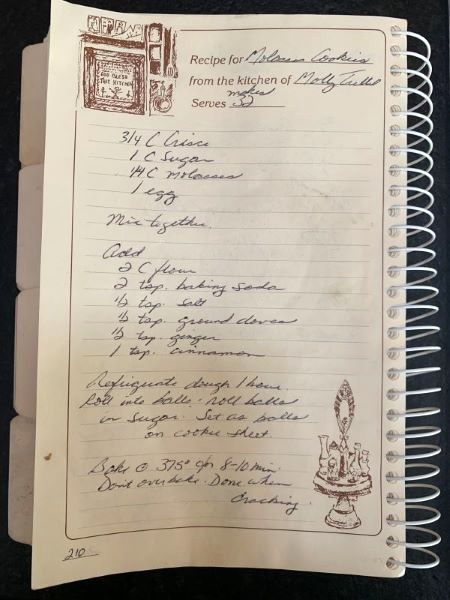 GOD BLESS
THE KITCHEN
Recipe for Molasses Cookies
from the kitchen of Molly Tuttle
makes
Serves 32
3/4 C Crisco
1 C Sugar
1/4 C Molasses
1 egg
Mix together.
Add
2 C flour
2 tsp. baking soda
1/2 tsp. salt
1/2 tsp. ground cloves
1/2 tsp. ginger
1 tsp. cinnamon
Refrigerate dough 1 hour.
Roll into balls - roll balls
in sugar. Set as balls
on cookie sheet.
Bake @ 375° for 8-10 min.
Don't overbake. Done when
cracking.
210